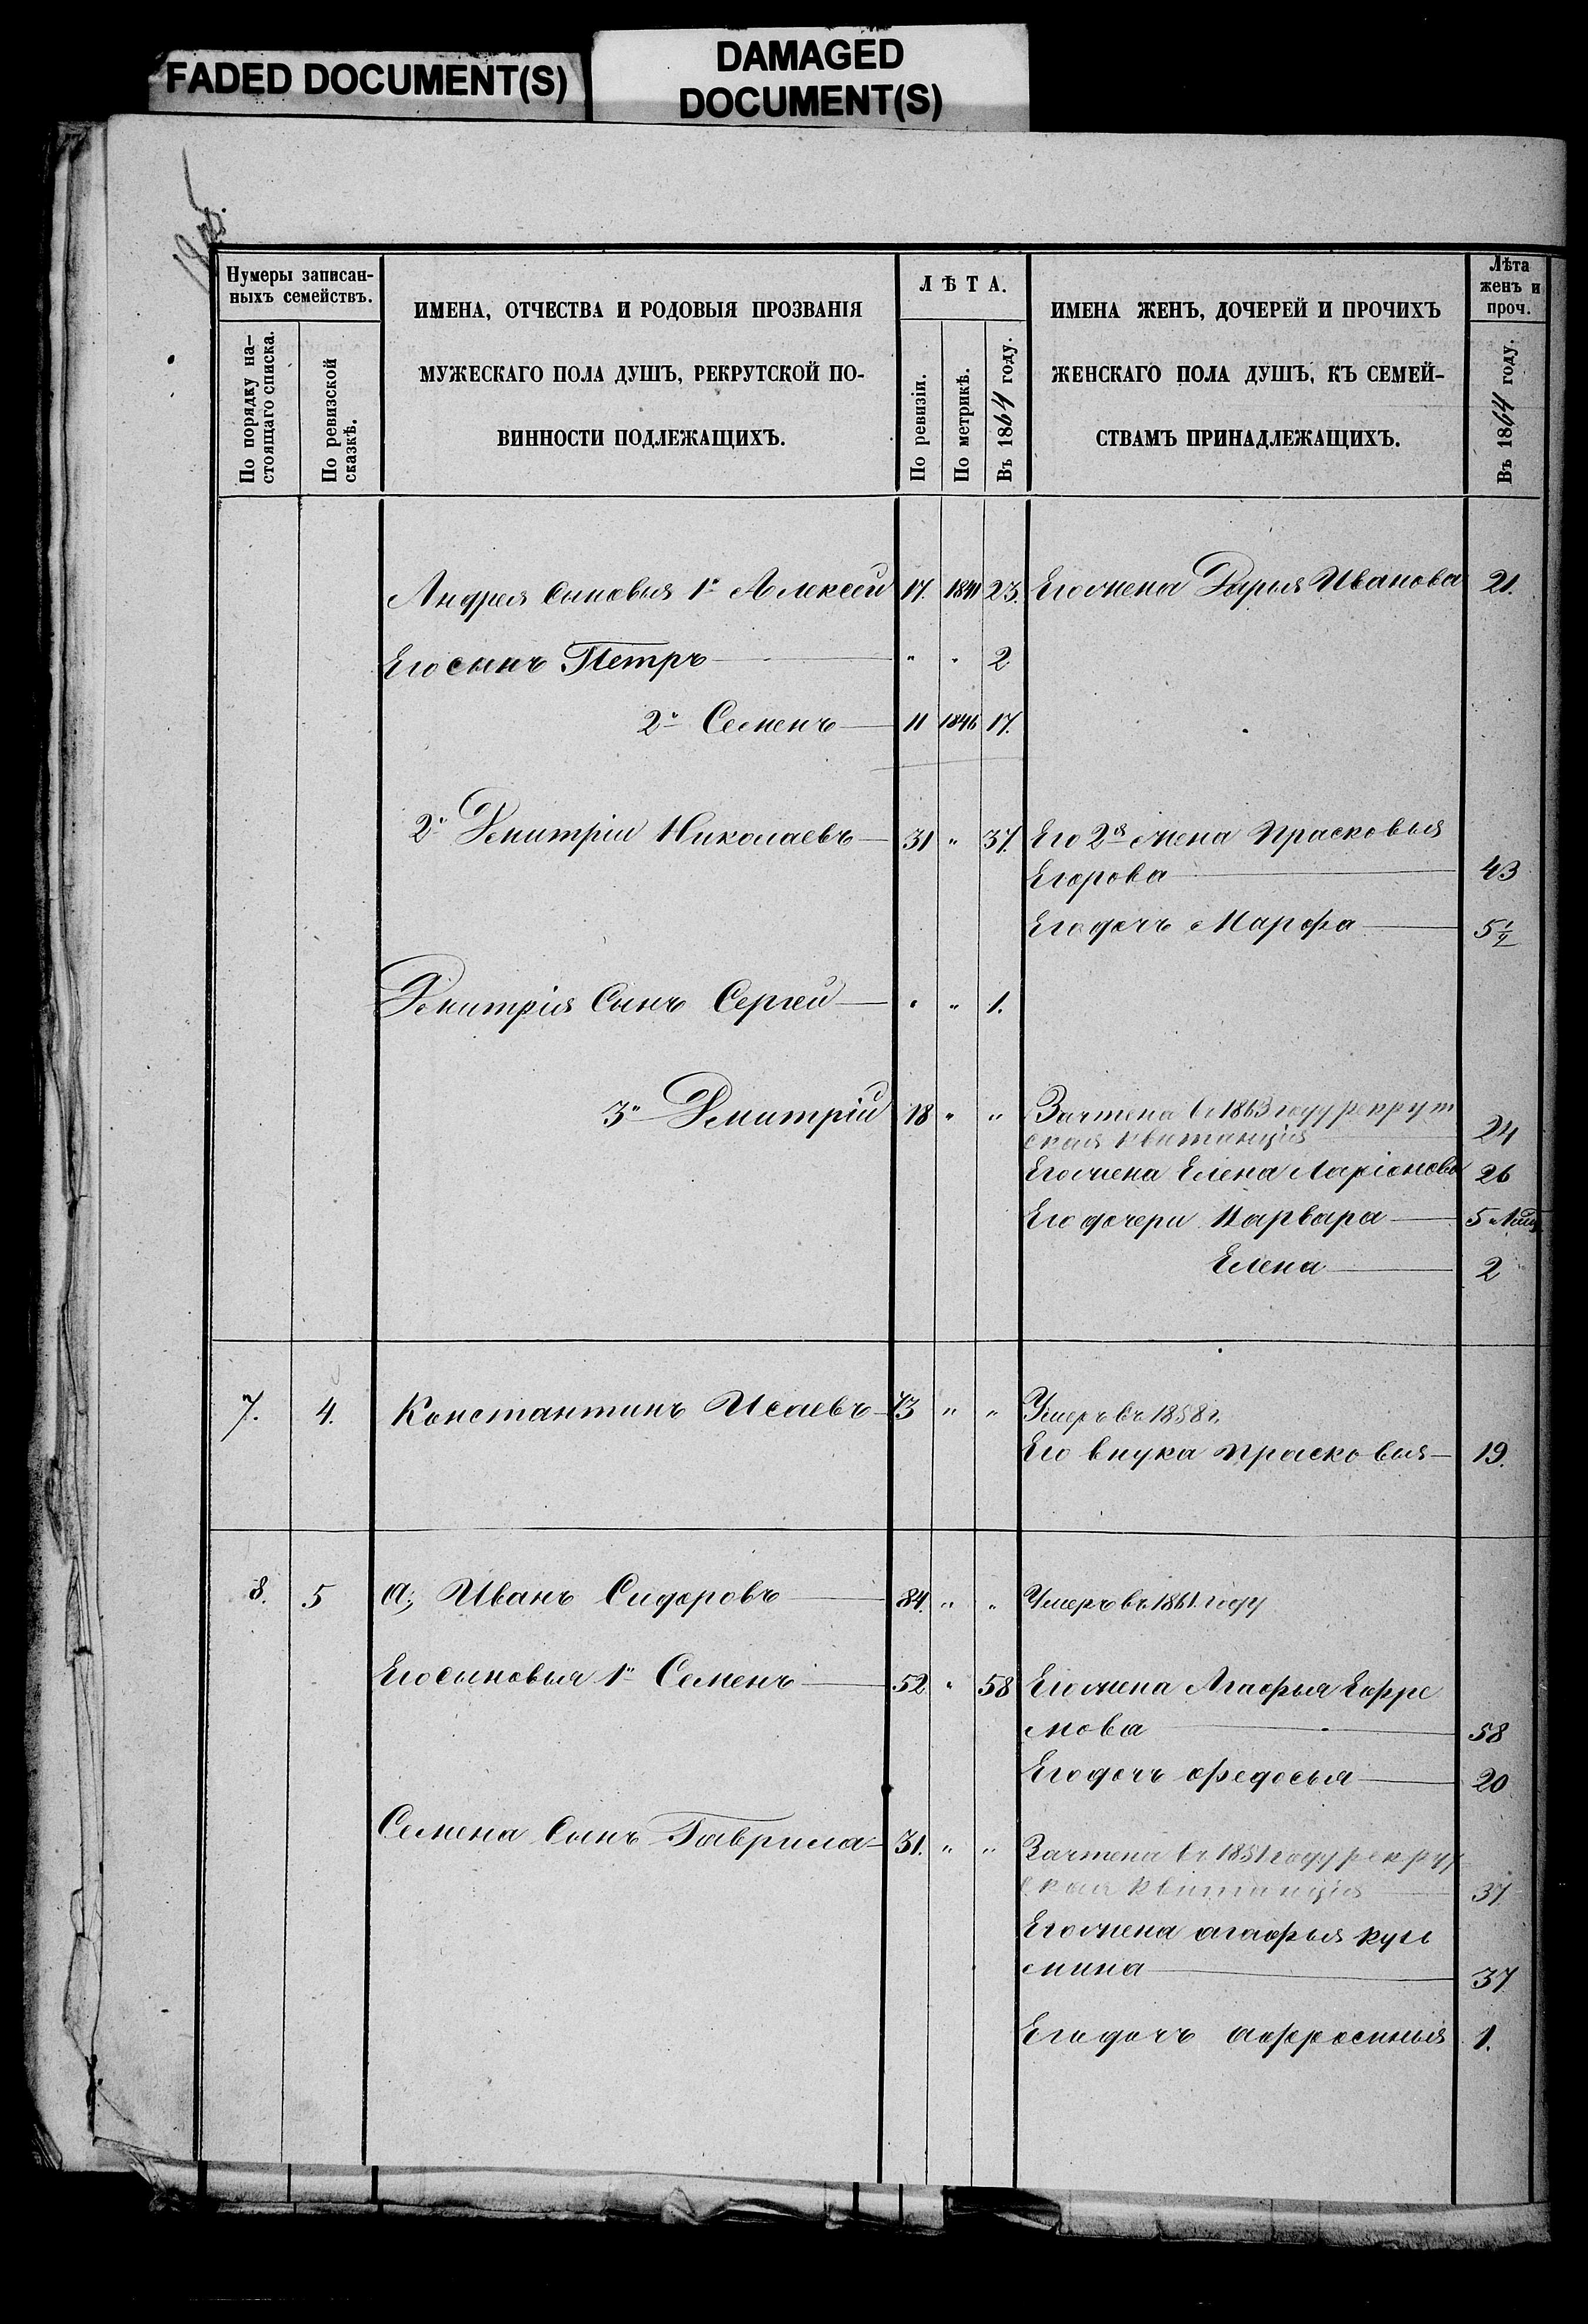 FADED DOCUMENT(S)
DAMAGED
DOCUMENT(S)
Нумеры записан-
ныхъ семействъ.
По порядку на-
стоящаго списка.
По ревизской
сказкѣ.
ИМЕНА, ОТЧЕСТВА И РОДОВЫЯ ПРОЗВАНІЯ
МУЖЕСКАГО ПОЛА ДУШЪ, РЕКРУТСКОЙ ПО-
ВИННОСТИ ПОДЛЕЖАЩИХЪ.
ЛѢТА.
По ревизіи.
По метрикѣ.
Въ 1864 году.
ИМЕНА ЖЕНЪ, ДОЧЕРЕЙ И ПРОЧИХЪ
ЖЕНСКАГО ПОЛА ДУШЪ, КЪ СЕМЕЙ-
СТВАМЪ ПРИНАДЛЕЖАЩИХЪ.
Лѣта
женъ и
проч.
Въ 1864 году.
Андрея сыновья 1й Алексей 17. 1841 23. Его жена Дарья Иванова 21.
Его сынъ Петръ " " 2
2й Семенъ 11 1846 17.
2й Дмитрій Николаевъ 31 " 37. Его 2я жена Прасковья
Егорова 43
Его дочь Марфа 5 1/4
Дмитрія Сынъ Сергей " " 1.
3й Дмитрій 18 " " Зачтена въ 1863 году рекрут
ская квитанція 24
Его жена Елена Ларіонова 26
Его дочери Варвара 5
Елена 2
7. 4. Константинъ Исаевъ 73 " " Умеръ въ 1858 г.
Его внука Прасковья 19.
8. 5 а, Иванъ Сидоровъ 84. " " Умеръ въ 1861. году
Его сыновья 1й Семенъ 52 " 58 Его жена Агафья Ефре
мова 58
Его дочь Федосья 20
Семена Сынъ Гаврила 31. " " Зачтена въ 1851 году рекру
ская квитанція 37
Его жена агафья кузь
мина 37
Его дочь афросинья 1.